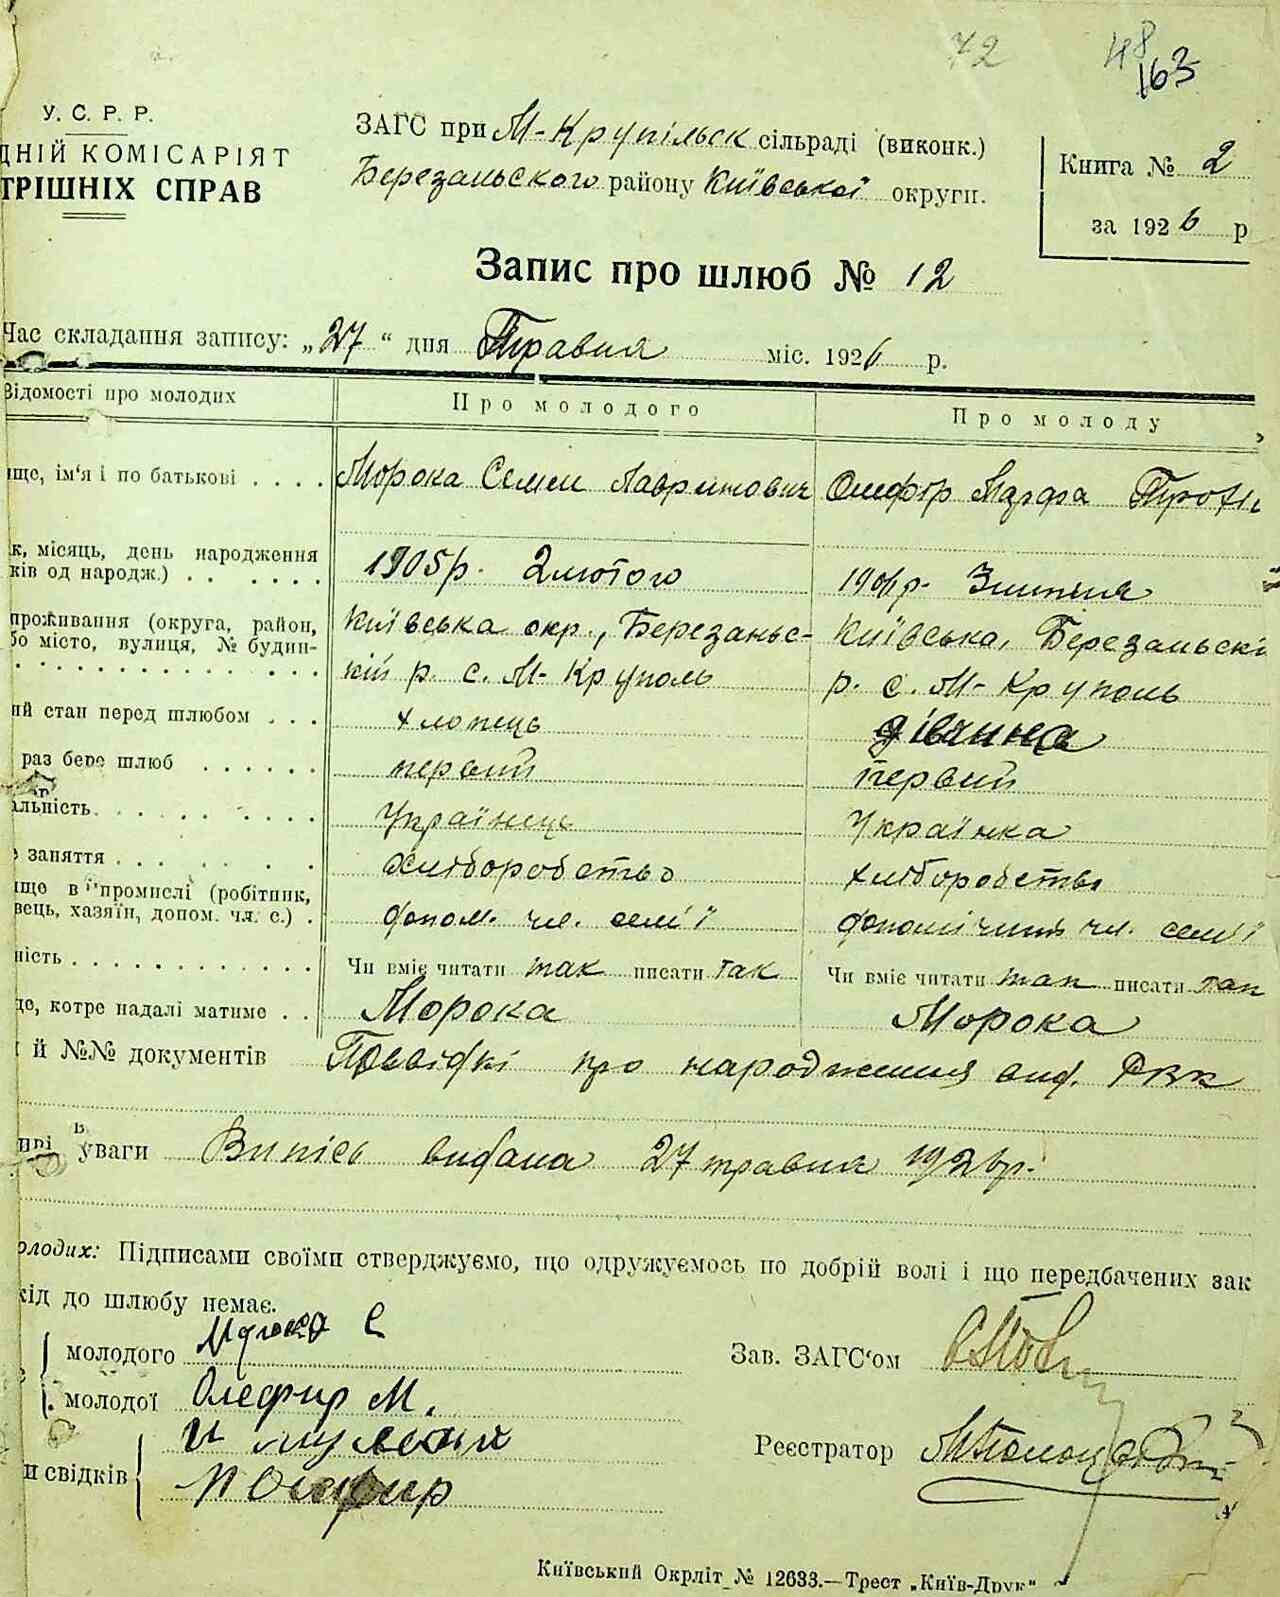 72
48
163
У. С. Р. Р.
ДНІЙ КОМІСАРІЯТ
ТРІШНІХ СПРАВ
ЗАГС при М-Крупільск сільраді (виконк.)
Березанського району Київської округи.
Книга № 2
за 1926 р
Запис про шлюб № 12
Час складання запису: „27“ дня Травня міс. 1926 р.
Відомості про молодих
Про молодого
Про молоду
ище, ім'я і по батькові . . . .
Морока Семен Лавринович
Олефір Марфа
к, місяць, день народження
ків од народж.) . . . . . .
1905р. 2 лютого
1906р. 3 липня
проживання (округа, район,
бо місто, вулиця, № будин-
Київська окр., Березансь-
кій р. с. М-Круполь
Київська, Березанські
р. с. М-Круполь
ий стан перед шлюбом . . .
хлопець
дівчина
раз бере шлюб . . . . . .
первий
первий
альність. . . . .
Українець
Українка
заняття . . . . .
хліборобство
хліборобство
ище в промислі (робітник,
вець, хазяїн, допом. чл. с.) .
допом. чл. сем'ї
допомічний чл. сем'ї
ність . . . . . . . . . . . .
Чи вміє читати так писати так
Чи вміє читати так писати так
ще, котре надалі матиме . .
Морока
Морока
й №№ документів Посвідкі про народження вид. РВК
иві уваги Випись видана 27 травня 1926р.
олодих: Підписами своїми стверджуємо, що одружуємось по добрій волі і що передбачених зак
кід до шлюбу немає.
молодого Морока С
молодої Олефир М.
и свідків
Зав. ЗАГС'ом
Реєстратор
Київський Окрліт № 12633.—Трест „Київ-Друк“